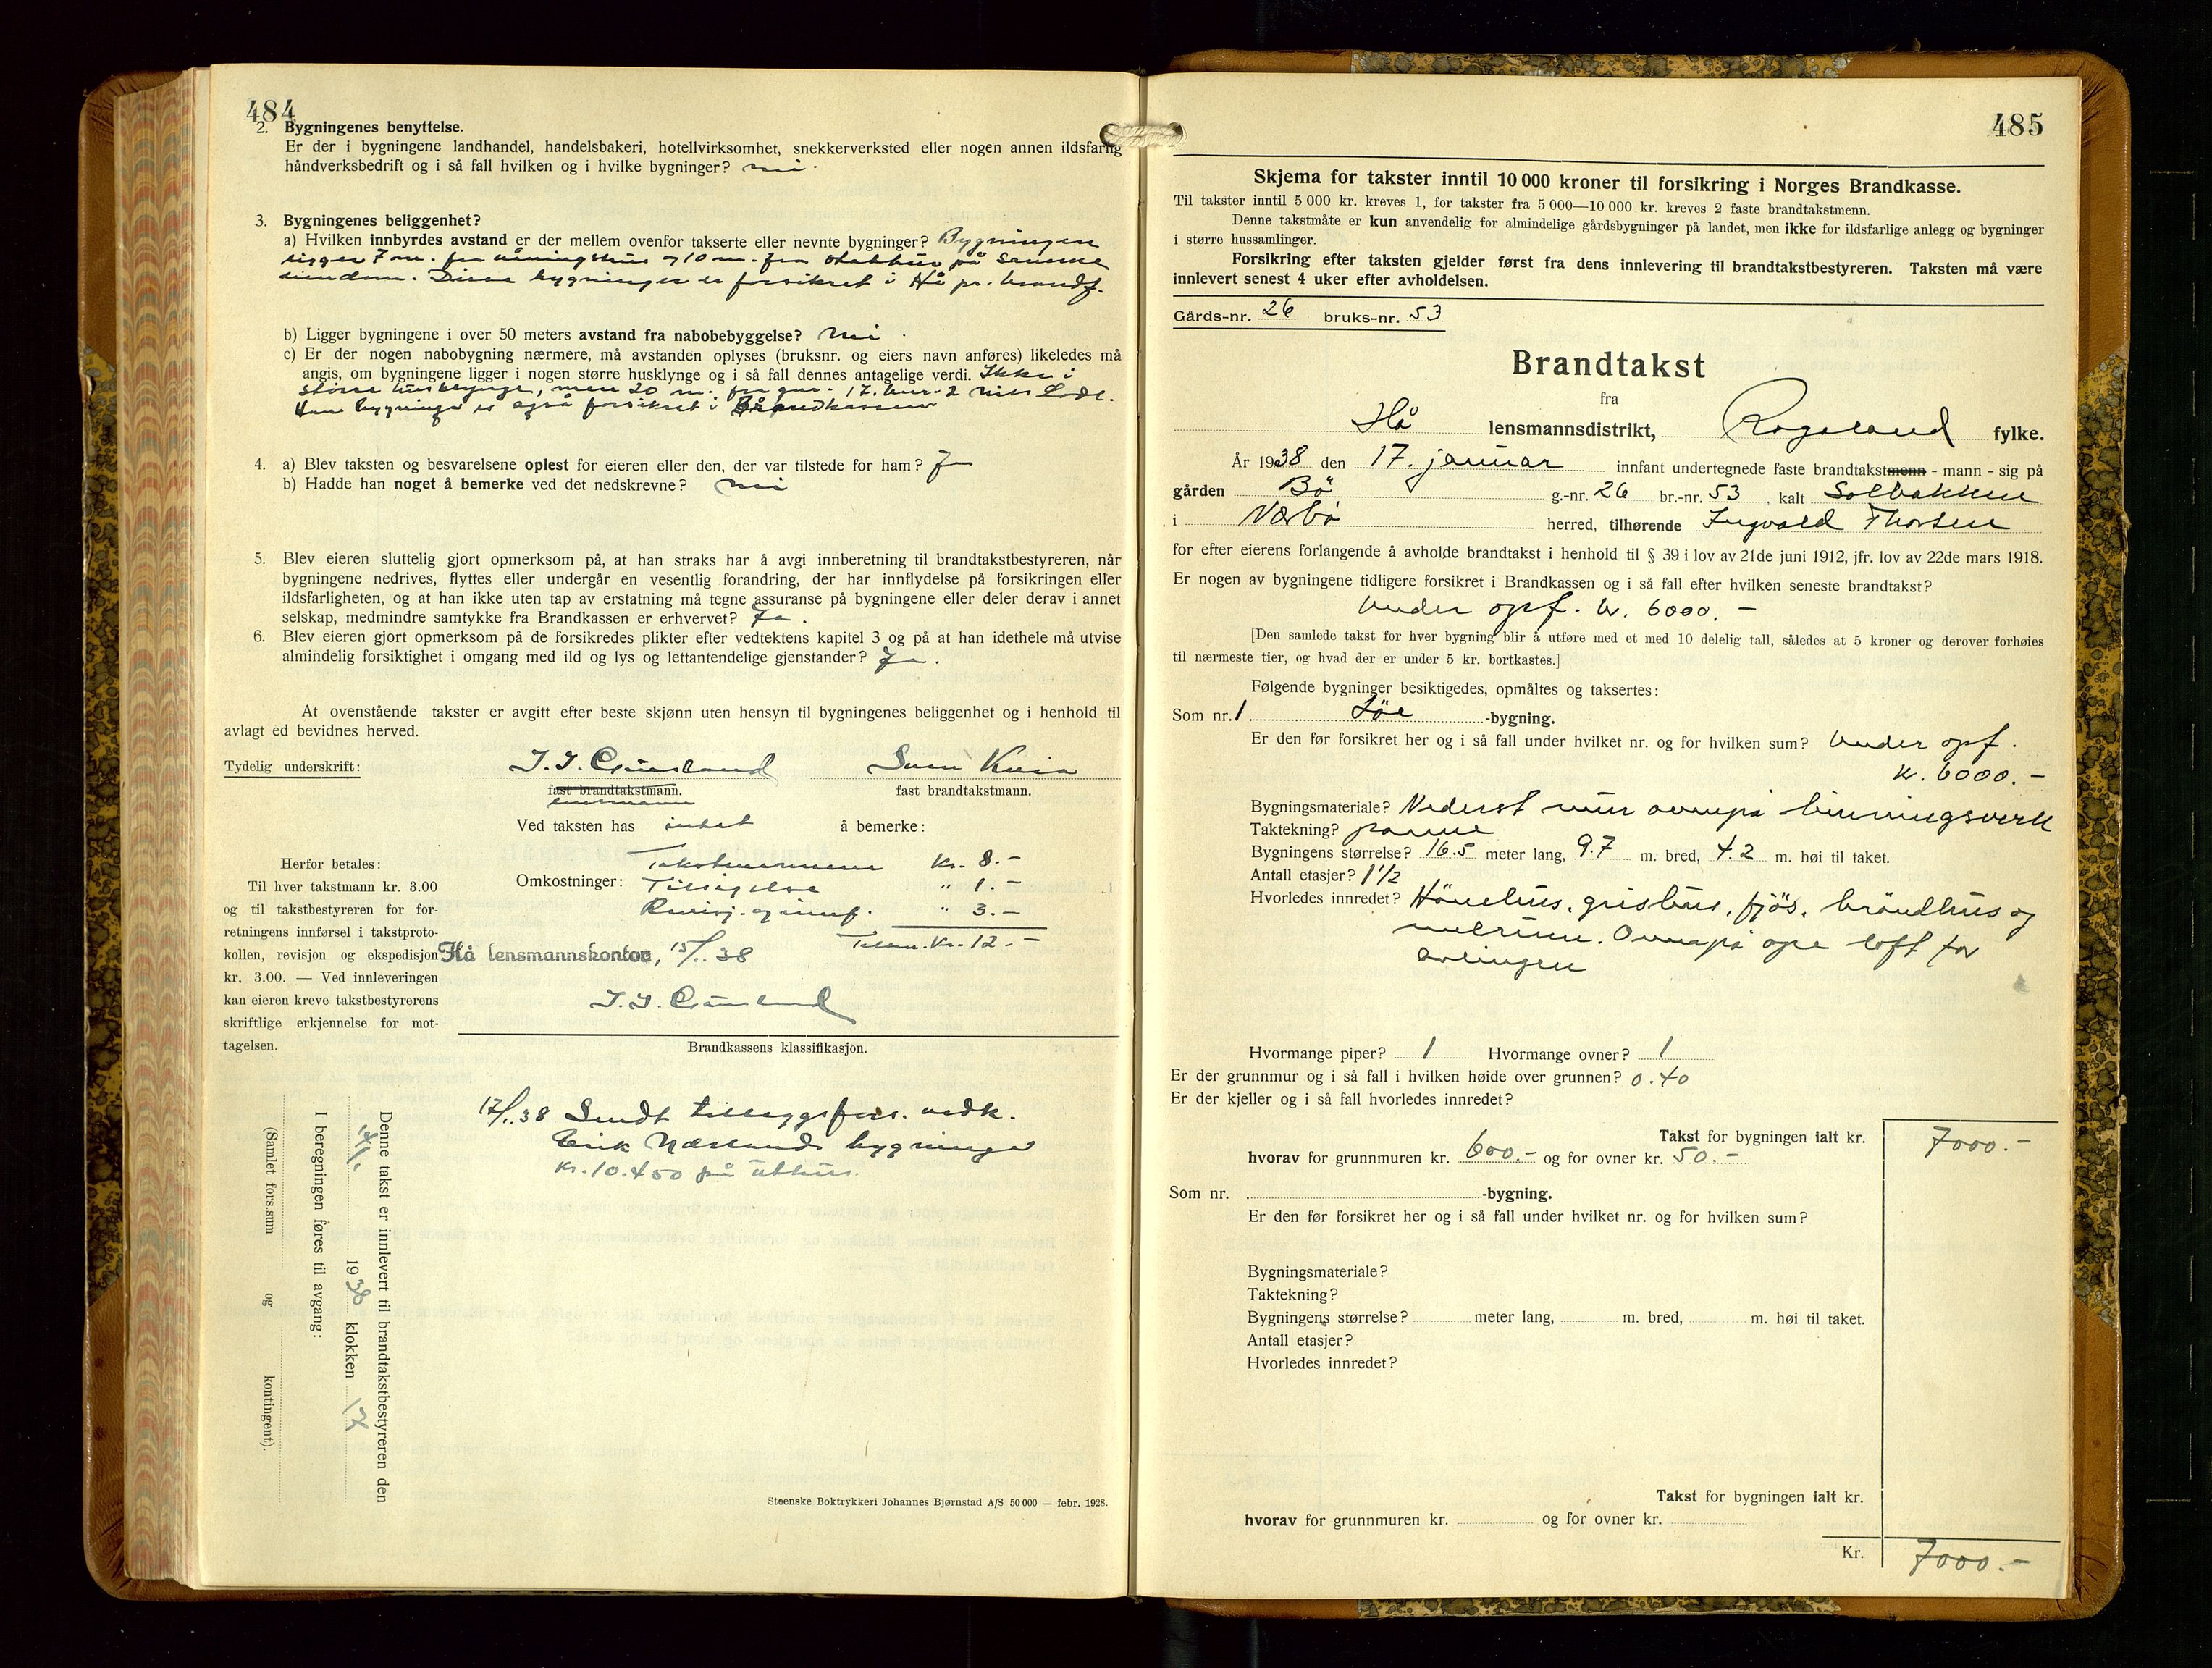 484
2. Bygningenes benyttelse.
Er der i bygningene landhandel, handelsbakeri, hotellvirksomhet, snekkerverksted eller nogen annen ildsfarlig
håndverksbedrift og i så fall hvilken og i hvilke bygninger? nei.
3. Bygningenes beliggenhet?
a) Hvilken innbyrdes avstand er der mellem ovenfor takserte eller nevnte bygninger? Bygningen
ligger 7 m. fra våningshus og 10 m. fra stabbur på samme
eiendom. Disse bygninger er forsikret i Hå pr. brandf.
b) Ligger bygningene i over 50 meters avstand fra nabobebyggelse? nei.
c) Er der nogen nabobygning nærmere, må avstanden oplyses (bruksnr. og eiers navn anføres) likeledes må
angis, om bygningene ligger i nogen større husklynge og i så fall dennes antagelige verdi. Ikke i
større husklynge, men 20 m. fra gnr. 17. bnr. 2 Nils Lode.
bygninger er også forsikret i Brandkassen
4. a) Blev taksten og besvarelsene oplest for eieren eller den, der var tilstede for ham? Ja
b) Hadde han noget å bemerke ved det nedskrevne? nei
5. Blev eieren sluttelig gjort opmerksom på, at han straks har å avgi innberetning til brandtakstbestyreren, når
bygningene nedrives, flyttes eller undergår en vesentlig forandring, der har innflydelse på forsikringen eller
ildsfarligheten, og at han ikke uten tap av erstatning må tegne assuranse på bygningene eller deler derav i annet
selskap, medmindre samtykke fra Brandkassen er erhvervet? Ja.
6. Blev eieren gjort opmerksom på de forsikredes plikter efter vedtektens kapitel 3 og på at han idethele må utvise
almindelig forsiktighet i omgang med ild og lys og lettantendelige gjenstander? Ja.
At ovenstående takster er avgitt efter beste skjønn uten hensyn til bygningenes beliggenhet og i henhold til
avlagt ed bevidnes herved.
Tydelig underskrift: Sven Kvia
fast brandtakstmann. fast brandtakstmann.
lensmann
Ved taksten has intet å bemerke:
Herfor betales:
Til hver takstmann kr. 3.00
og til takstbestyreren for for-
retningens innførsel i takstproto-
kollen, revisjon og ekspedisjon
kr. 3.00. — Ved innleveringen
kan eieren kreve takstbestyrerens
skriftlige erkjennelse for mot-
tagelsen.
Takstmennene Kr. 8.-
Omkostninger: Tilsigelse " 1.-
Revisj. og innf. " 3.-
Tilsm. Kr. 12.-
Hå lensmannskontor, 15/1.38
Brandkassens klassifikasjon.
17/1.38 Sendt tilleggsfors. vedk.
Erik Nærlands bygninger
Kr. 10.450 på uthus.
Denne takst er innlevert til brandtakstbestyreren den
14/1. 1938 klokken 17
I beregningen føres til avgang:
(Samlet fors.sum og kontingent).
Steenske Boktrykkeri Johannes Bjørnstad A/S 50 000 — febr. 1928.
485
Skjema for takster inntil 10 000 kroner til forsikring i Norges Brandkasse.
Til takster inntil 5 000 kr. kreves 1, for takster fra 5 000—10 000 kr. kreves 2 faste brandtakstmenn.
Denne takstmåte er kun anvendelig for almindelige gårdsbygninger på landet, men ikke for ildsfarlige anlegg og bygninger
i større hussamlinger.
Forsikring efter taksten gjelder først fra dens innlevering til brandtakstbestyreren. Taksten må være
innlevert senest 4 uker efter avholdelsen.
Gårds-nr. 26 bruks-nr. 53
Brandtakst
fra
Hå lensmannsdistrikt, Rogaland fylke.
År 1938 den 17. januar innfant undertegnede faste brandtakstmenn - mann - sig på
gården Bø g.-nr. 26 br.-nr. 53, kalt Solbakken
i Nærbø herred, tilhørende Ingvald Thorsen
for efter eierens forlangende å avholde brandtakst i henhold til § 39 i lov av 21de juni 1912, jfr. lov av 22de mars 1918.
Er nogen av bygningene tidligere forsikret i Brandkassen og i så fall efter hvilken seneste brandtakst?
Under opf. kr. 6000.-
[Den samlede takst for hver bygning blir å utføre med et med 10 delelig tall, således at 5 kroner og derover forhøies
til nærmeste tier, og hvad der er under 5 kr. bortkastes.]
Følgende bygninger besiktigedes, opmåltes og taksertes:
Som nr. 1 Löe -bygning.
Er den før forsikret her og i så fall under hvilket nr. og for hvilken sum? Under opf.
kr. 6000.-
Bygningsmateriale? Nederst mur ovenpå binningsverk
Taktekning? panne
Bygningens størrelse? 16.5 meter lang, 9.7 m. bred, 4.2 m. høi til taket.
Antall etasjer? 1 1/2
Hvorledes innredet? Hönsehus, grishus, fjös, bröndhus og
melrum. Ovenpå ope loft for
avlingen
Hvormange piper? 1 Hvormange ovner? 1
Er der grunnmur og i så fall i hvilken høide over grunnen? 0.40
Er der kjeller og i så fall hvorledes innredet?
Takst for bygningen ialt kr. 7000.-
hvorav for grunnmuren kr. 600.- og for ovner kr. 50.-
Som nr. -bygning.
Er den før forsikret her og i så fall under hvilket nr. og for hvilken sum?
Bygningsmateriale?
Taktekning?
Bygningens størrelse? meter lang, m. bred, m. høi til taket.
Antall etasjer?
Hvorledes innredet?
Takst for bygningen ialt kr.
hvorav for grunnmuren kr. og for ovner kr.
Kr. 7000.-